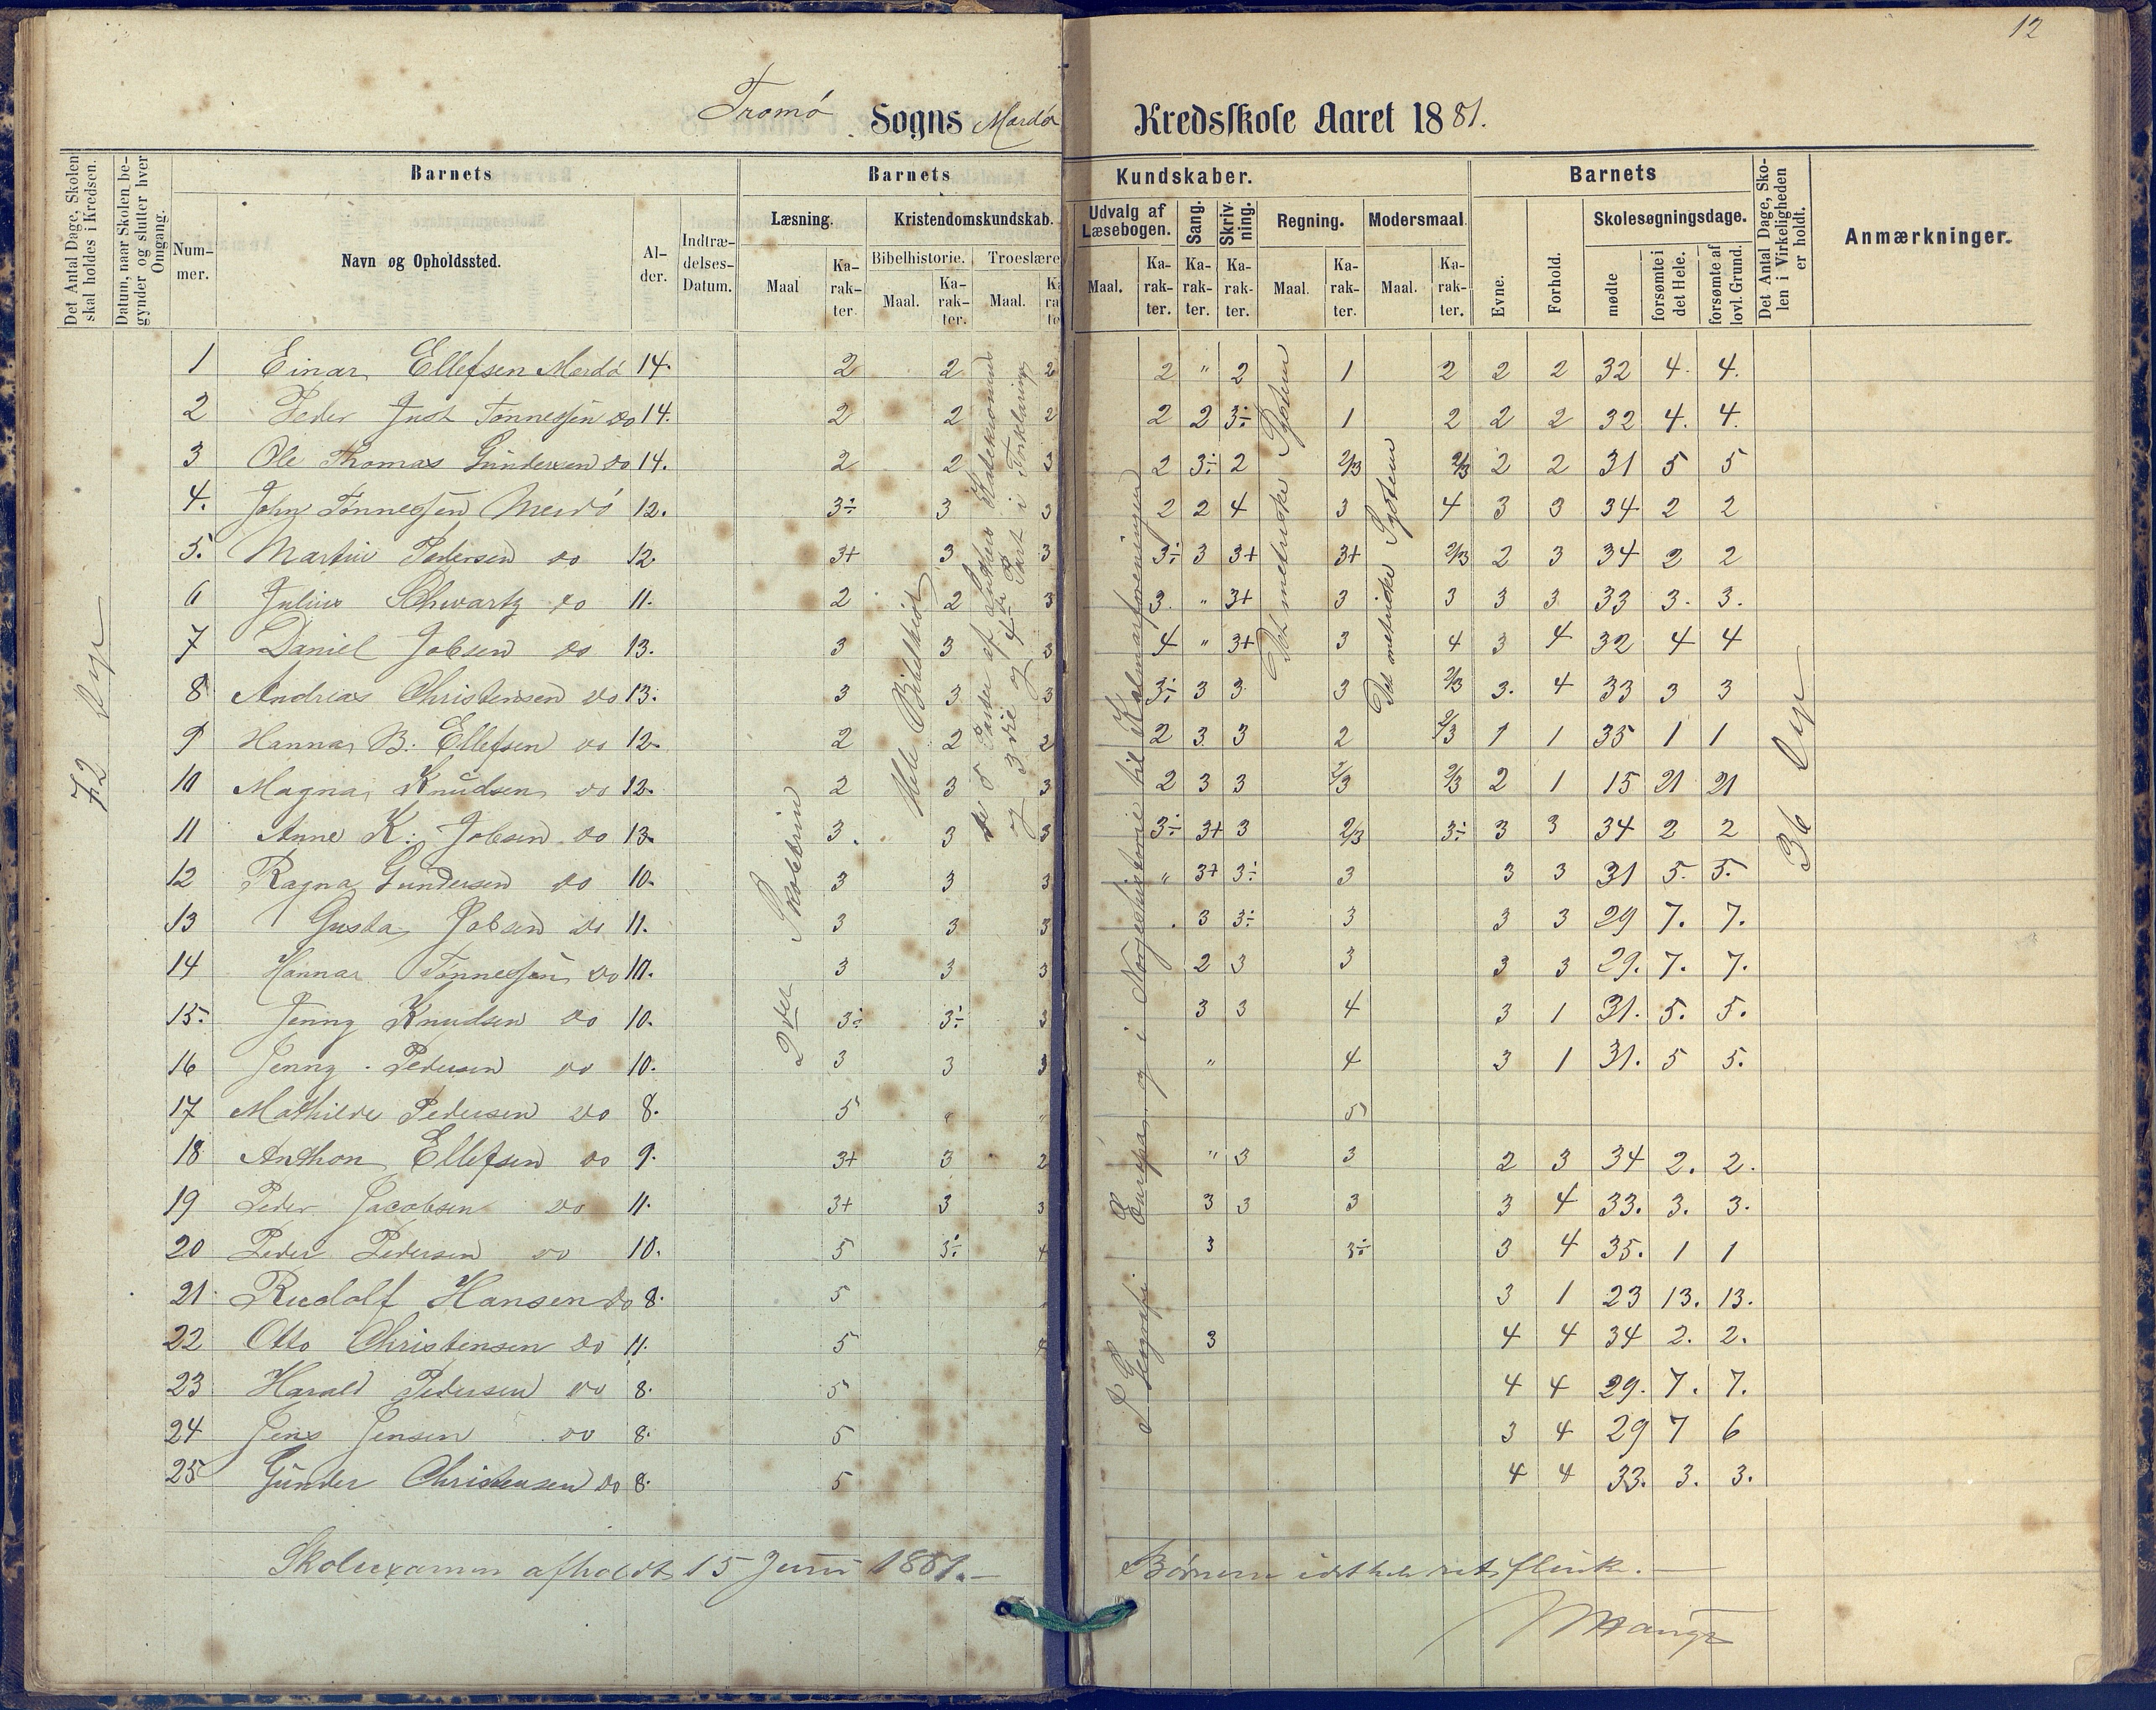 12
Tromö Sogns Mærdö Kredsskole Aaret 1881.
Det Antal Dage, Skolen skal holdes i Kredsen.
Datum, naar Skolen begynder og slutter hver Omgang.
Barnets
Nummer.
Navn og Opholdssted.
Alder.
Indtrædelses-Datum.
Barnets Kundskaber.
Læsning. Maal Karakter.
Kristendomskundskab.
Bibelhistorie. Maal. Karakter.
Troeslære Maal. Ka
Udvalg af Læsebogen. Maal. Karakter.
Sang. Karakter.
Skrivning. Karakter.
Regning. Maal. Karakter.
Modersmaal. Maal. Karakter.
Barnets
Evne.
Forhold.
Skolesøgningsdage.
mødte
forsømte i det Hele.
forsømte af lovl. Grund.
Det Antal Dage, Skolen i Virkeligheden er holdt.
Anmærkninger.
72 Dage
2den Skoletrin
Hele Bibelhist
de 5 Parter af Luthers Katekismus
og 3die og 4de Part i Forklaring
I Geografi Europa, og i Norgeshistorie til Kalmarforeningen
Det metriske System
Det metriske System
36 Dage
1 Einar Ellefsen Merdö 14. 2 2 2 2 " 2 1 2 2 2 32 4. 4.
2 Peder Just Tønnessen do 14. 2 2 2 2 2 3÷ 1 2 2 2 32 4. 4.
3 Ole Thomas Gundersen do 14. 2 2 3 2 3÷ 2 2/3 2/3 2 2 31 5 5
4. John Tønnessen Merdö 12. 3÷ 3 3 2 2 4 3 4 3 3 34 2 2
5. Martin Pedersen do 12. 3+ 3 3 3÷ 3 3+ 3+ 2/3 2 3 34 2 2
6 Julius Schwartz do 11. 2 2 3 3. " 3+ 3 3 3 3 33 3. 3.
7 Daniel Jobsen do 13. 3 3 3 4 " 3+ 3 4 3 4 32 4 4
8 Andreas Christensen do 13. 3 3 3 3÷ 3 3 3 2/3 3. 4 33 3 3
9 Hanna B. Ellefsen do 12. 2 2 2 2 3 3 2 2/3 1 1 35 1 1
10 Magna Knudsen do 12. 2 3 3 2 3 3 2/3 2/3 2 1 15 21 21
11 Anne K. Jobsen do 13. 3. 3 3 3÷ 3+ 3 2/3 3÷ 3 3 34 2 2
12 Ragna Gundersen do 10. 3 3 3 " 3+ 3÷ 3 3 3 31 5. 5.
13 Gusta Jobsen do 11. 3 3 3 . 3 3÷ 3 3 3 29 7. 7.
14 Hanna Tønnessen do 10. 3 3 3 2 3 3 3 3 29. 7. 7.
15. Jenny Knudsen do 10. 3÷ 3÷ 3 3 3 4 3 1 31. 5. 5.
16 Jenny Pedersen do 10. 3 3 3 " 4 3 1 31. 5 5.
17 Mathilde Pedersen do 8. 5 " " 5
18 Anthon Ellefsen do 9. 3+ 3 2 " 3 3 2 3 34 2. 2.
19 Peder Jacobsen do 11. 3+ 3 3 3 3 3 3 4 33. 3. 3.
20 Peder Pedersen do 10. 5 3÷ 4 3 3÷ 3 4 35. 1 1
21 Rudolf Hansen do 8. 5 3 1 23 13. 13.
22 Otto Christensen do 11. 5 4 3 4 4 34 2. 2.
23 Harald Pedersen do 8. 5 4 4 29. 7. 7.
24 Jens Jensen do 8. 5 3 4 29 7 6
25 Gunder Christensen do 8. 5 4 4 33. 3. 3.
Skolexamen afholdt 15 Juni 1881.—
Børnene idethele ret flink.—